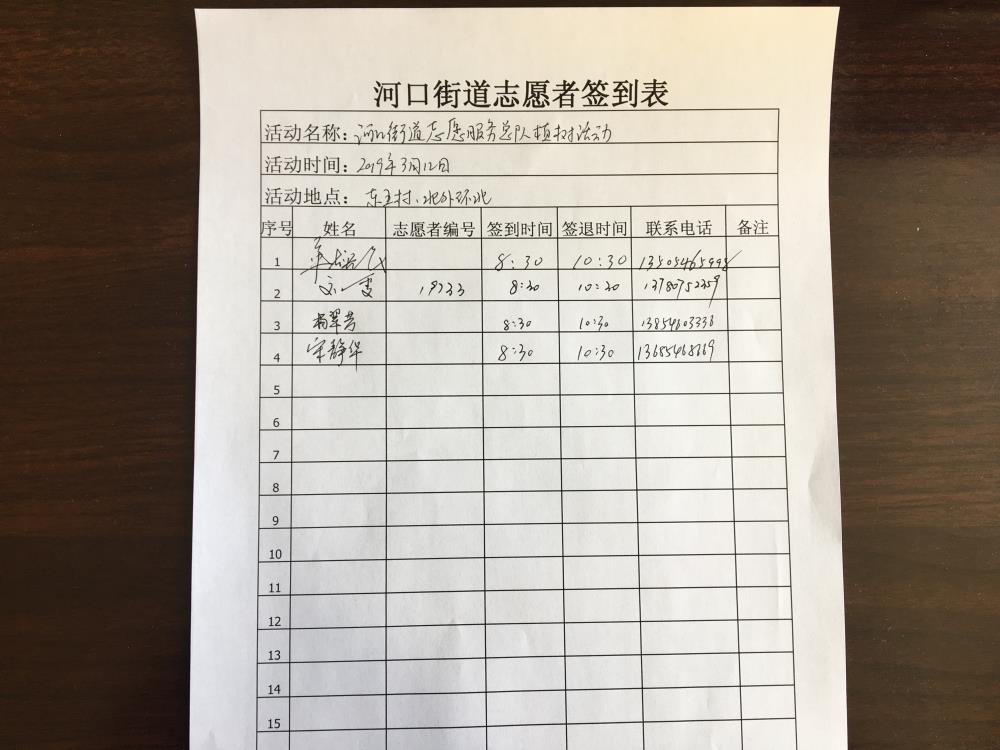 河口街道志愿者签到表
活动名称：河口街道志愿服务总队植树活动
活动时间：2019年3月12日
活动地点：东王村、北外环北
序号 姓名 志愿者编号 签到时间 签退时间 联系电话 备注
1 8:30 10:30
2 8:30 10:30
3 杨翠芳 8:30 10:30 13854603336
4 宋静华 8:30 10:30
5
6
7
8
9
10
11
12
13
14
15